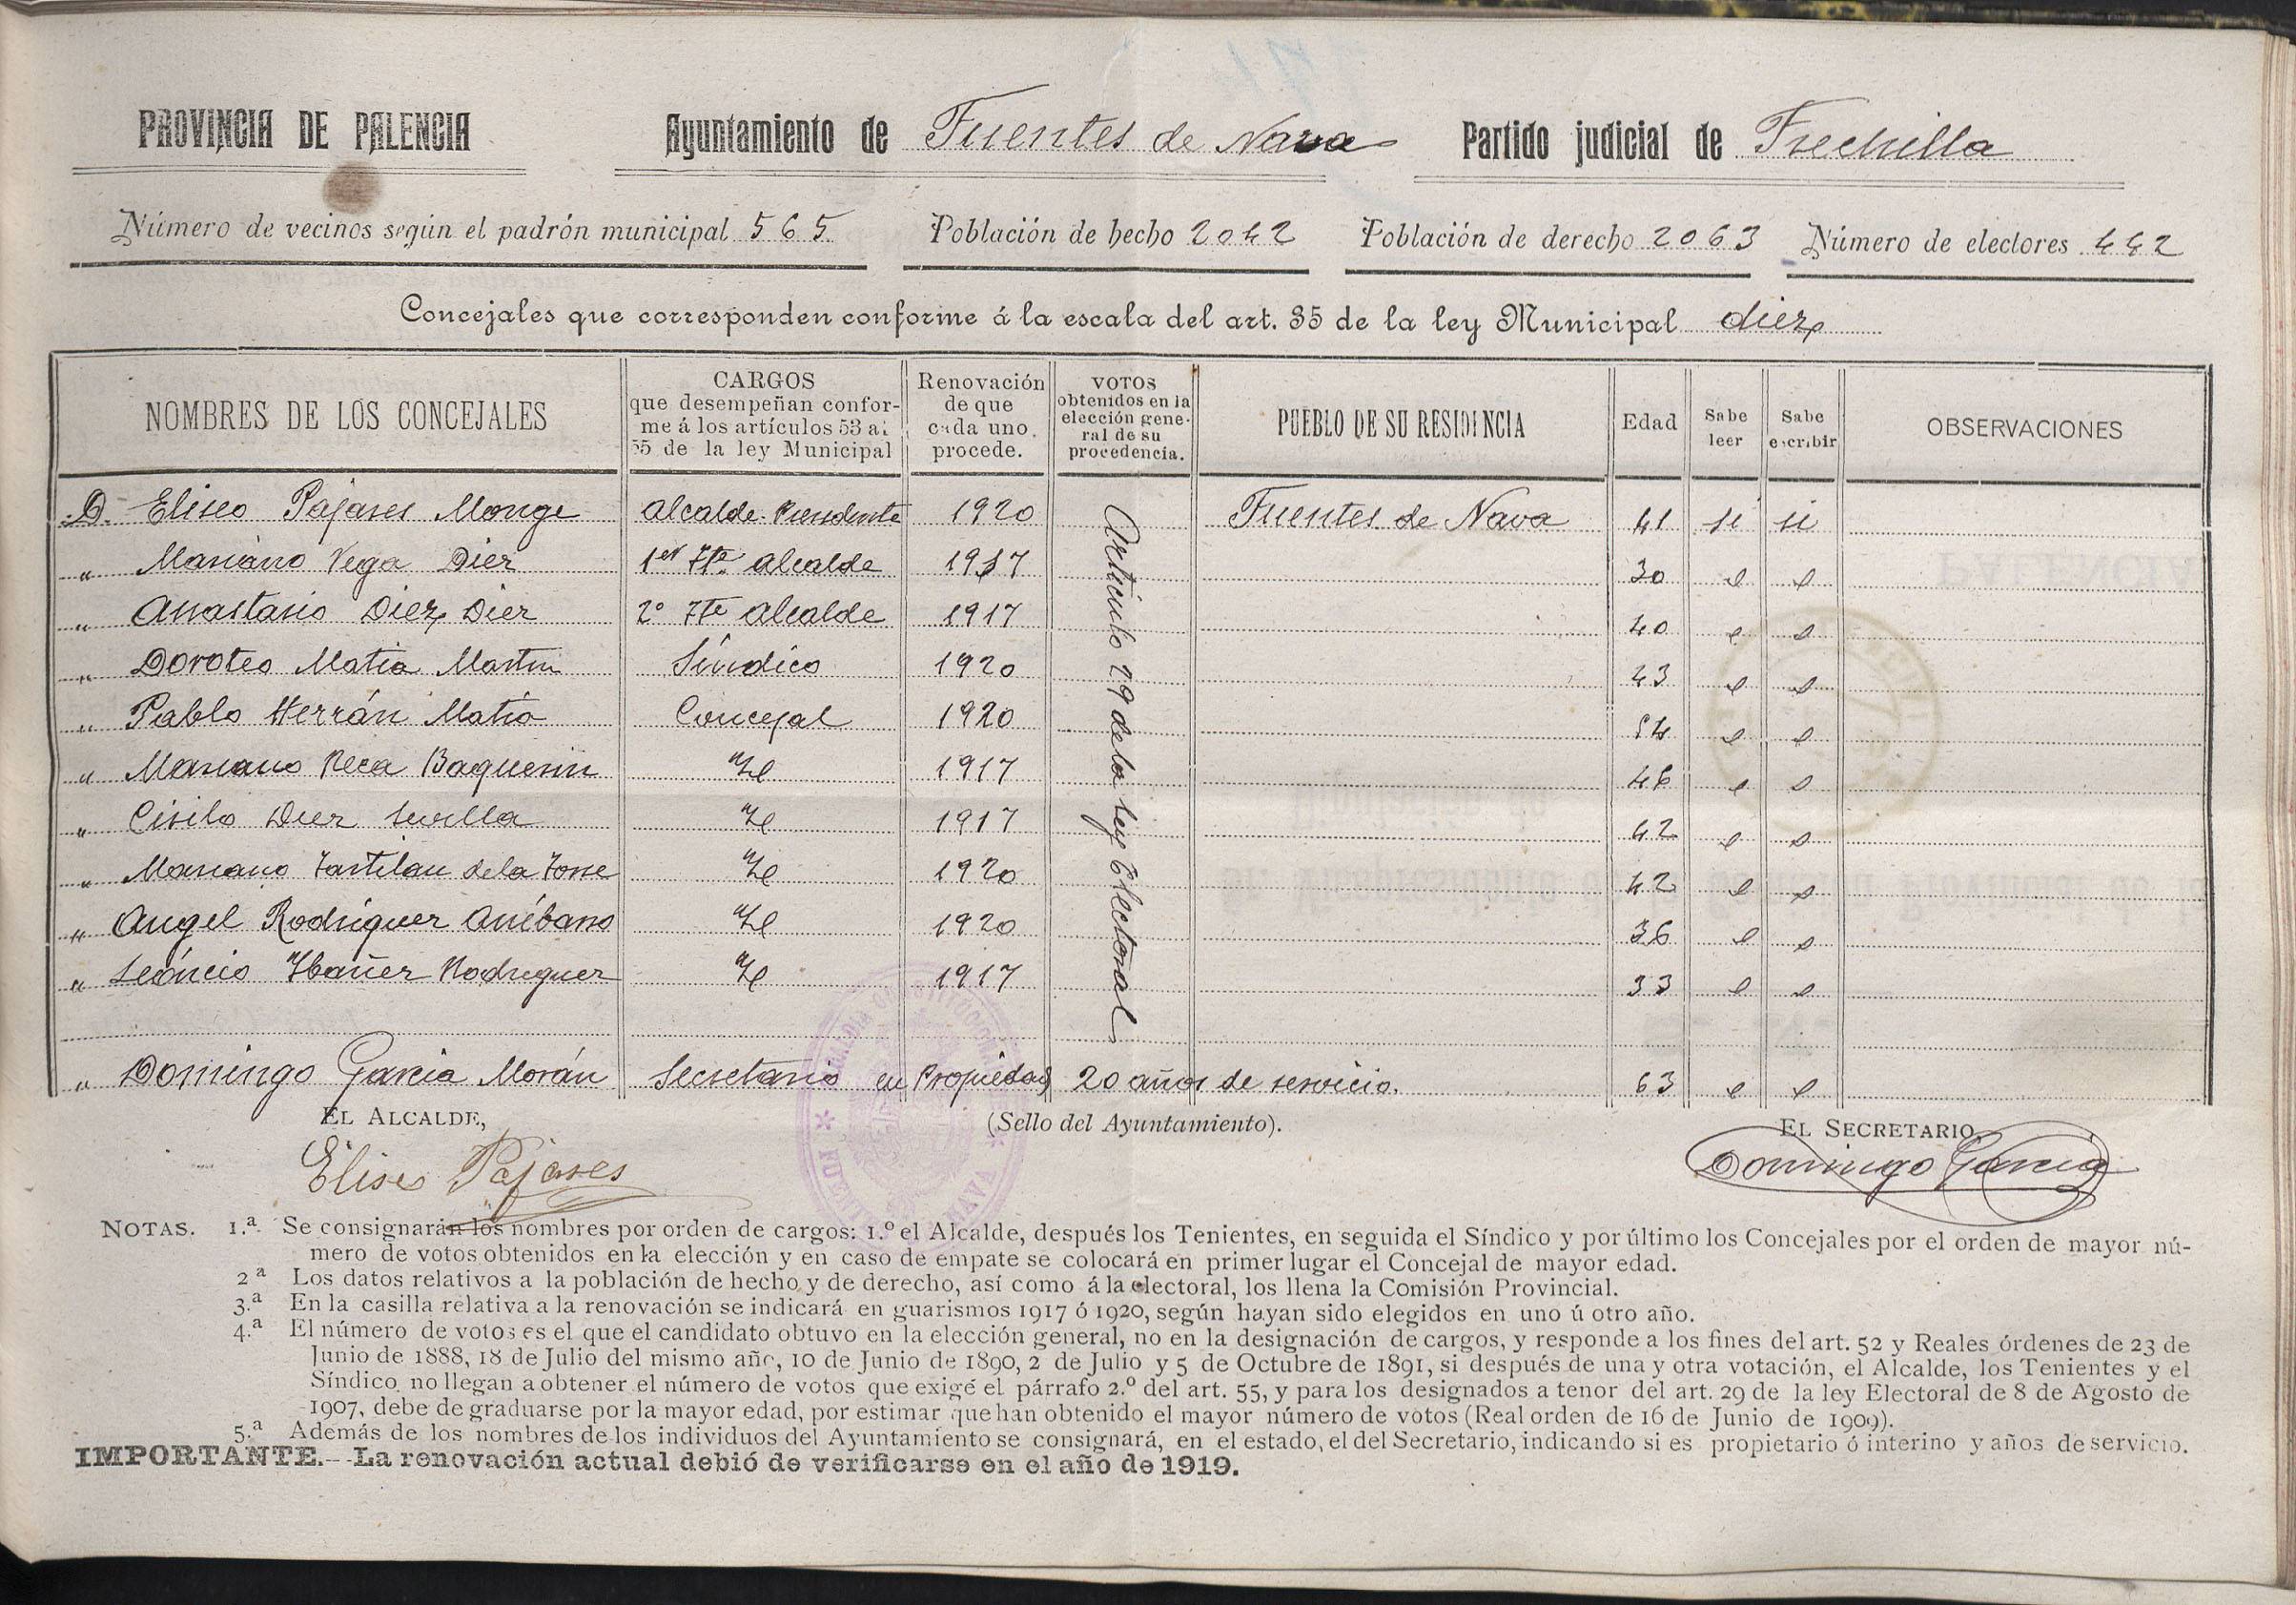 PROVINCIA DE PALENCIA Ayuntamiento de Fuentes de Nava Partido judicial de Frechilla
Número de vecinos según el padrón municipal 565 Población de hecho 2042 Población de derecho 2063 Número de electores 442
Concejales que corresponden conforme á la escala del art. 35 de la ley Municipal diez
NOMBRES DE LOS CONCEJALES
CARGOS
que desempeñan confor-
me á los artículos 53 al
55 de la ley Municipal
Renovación
de que
cada uno
procede.
VOTOS
obtenidos en la
elección gene-
ral de su
procedencia.
PUEBLO DE SU RESIDENCIA
Edad
Sabe
leer
Sabe
escribir
OBSERVACIONES
D. Eliseo Pajares Monge Alcalde-Presidente 1920 Fuentes de Nava 41 si si
" Mariano Vega Diez 1er Tte. Alcalde 1917 30 " "
" Anastasio Diez Diez 2º Tte Alcalde 1917 40 " "
" Doroteo Matia Martin Síndico 1920 43 " "
" Pablo Herrán Matia Concejal 1920 54 " "
" Mariano Reca Baquerin Id 1917 46 " "
" Cirilo Diez Sevilla Id 1917 42 " "
" Mariano Tastilau de la Torre Id 1920 42 " "
" Angel Rodriguez Antibano Id 1920 36 " "
" Leoncio Ibañez Rodriguez Id 1917 33 " "
Artículo 29 de la ley Electoral
" Domingo Garcia Morán Secretario en Propiedad 20 años de servicio. 63 " "
EL ALCALDE, (Sello del Ayuntamiento). EL SECRETARIO,
Eliseo Pajares Domingo Garcia
NOTAS. 1.ª Se consignarán los nombres por orden de cargos: 1.º el Alcalde, después los Tenientes, en seguida el Síndico y por último los Concejales por el orden de mayor nú-
mero de votos obtenidos en la elección y en caso de empate se colocará en primer lugar el Concejal de mayor edad.
2ª Los datos relativos a la población de hecho y de derecho, así como á la electoral, los llena la Comisión Provincial.
3.ª En la casilla relativa a la renovación se indicará en guarismos 1917 ó 1920, según hayan sido elegidos en uno ú otro año.
4.ª El número de votos es el que el candidato obtuvo en la elección general, no en la designación de cargos, y responde a los fines del art. 52 y Reales órdenes de 23 de
Junio de 1888, 18 de Julio del mismo año, 10 de Junio de 1890, 2 de Julio y 5 de Octubre de 1891, si después de una y otra votación, el Alcalde, los Tenientes y el
Síndico no llegan a obtener el número de votos que exige el párrafo 2.º del art. 55, y para los designados a tenor del art. 29 de la ley Electoral de 8 de Agosto de
1907, debe de graduarse por la mayor edad, por estimar que han obtenido el mayor número de votos (Real orden de 16 de Junio de 1909).
5.ª Además de los nombres de los individuos del Ayuntamiento se consignará, en el estado, el del Secretario, indicando si es propietario ó interino y años de servicio.
IMPORTANTE.--La renovación actual debió de verificarse en el año de 1919.